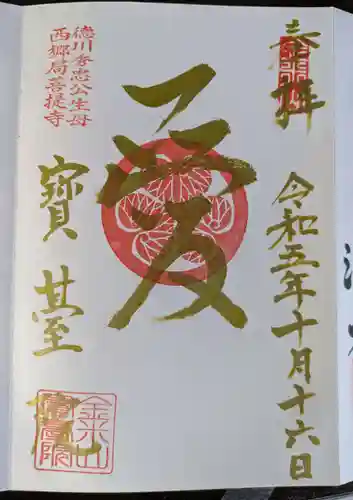 奉拝
令和五年十月十六日
愛
徳川秀忠公生母
西郷局菩提寺
寶䑓院
金米山
寶臺院